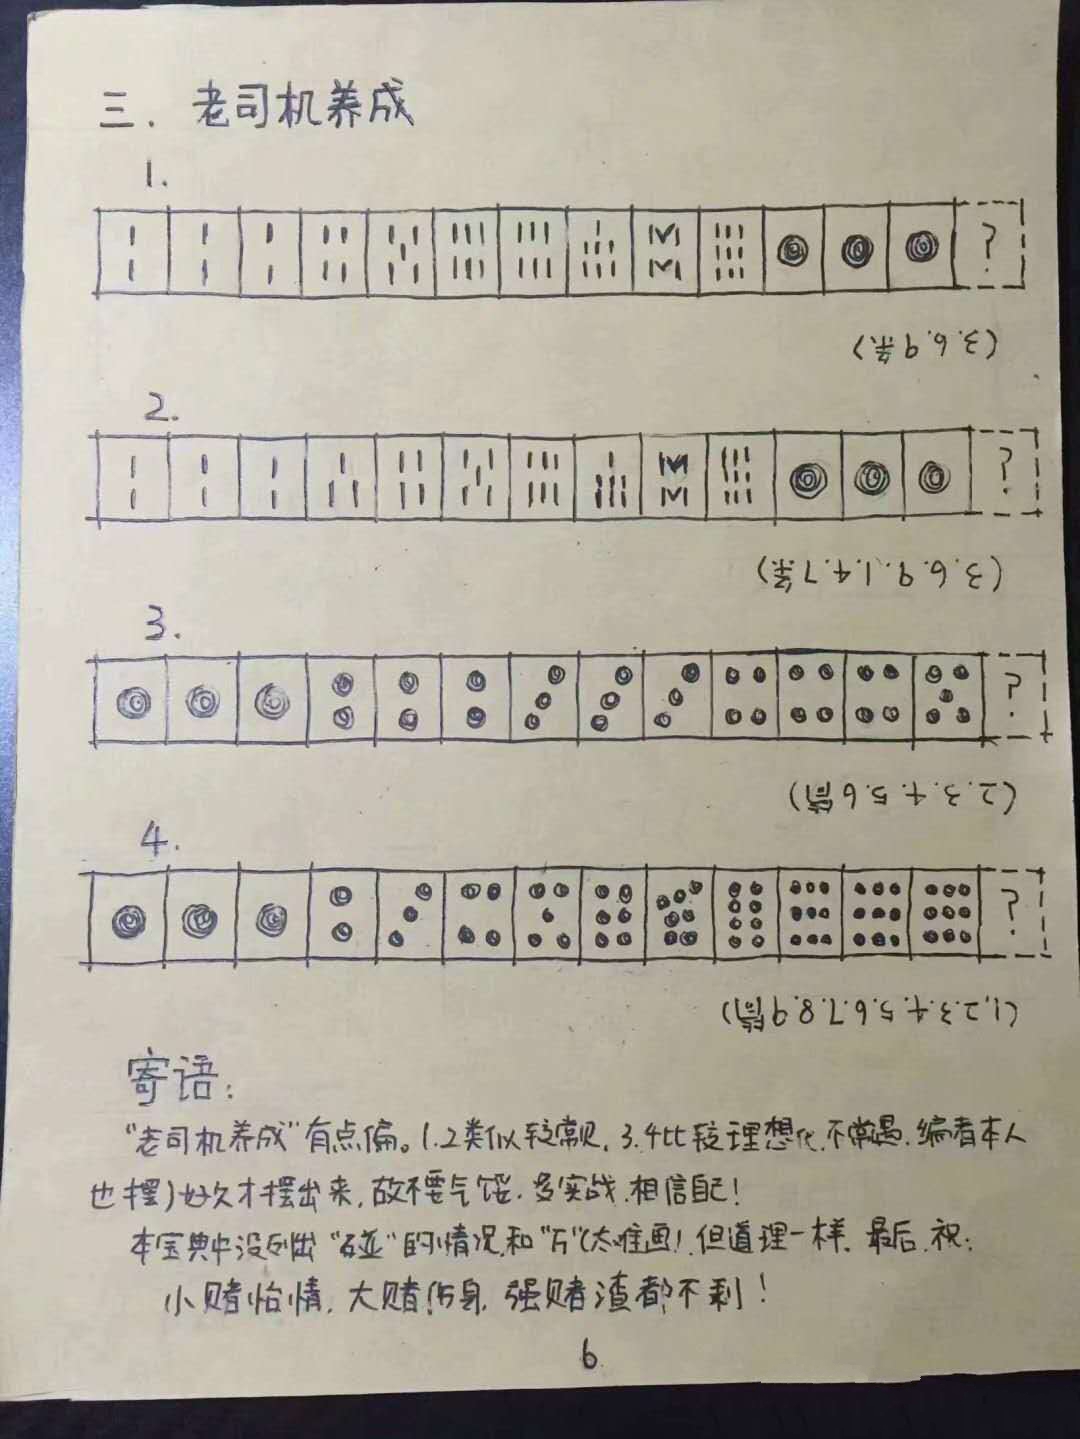 三. 老司机养成
1.
?
(3.6.9条)
2.
?
(3.6.9.1.4.7条)
3.
?
(2.3.4.5.6筒)
4.
?
(1,2.3.4.5.6.7.8.9筒)
寄语:
“老司机养成”有点偏。1.2类似较常见, 3.4比较理想化,不常遇, 编者本人
也摆了好久才摆出来, 故不要气馁. 多实战, 相信自己!
本宝典中没列出“碰”的情况,和“万”(太难画!), 但道理一样. 最后, 祝:
小赌怡情, 大赌伤身, 强赌渣都不剩!
6